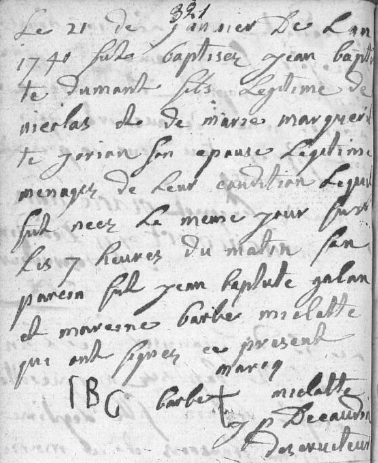 321
Le 21 de janvier De Lan
1741 fut baptisez jean bapti
te dumant fils Legitime de
nicolas et de marie marguerit
te jorian son epouse Legitime
menagez de Leur condition Lequel
fut neez Le meme jour sur
Les 7 heurez du matin son
parein fut jean baptiste galan
et mareine barbe mielatte
qui ont signez ce present
marcq
IBG barbe + mielatte
desservteur